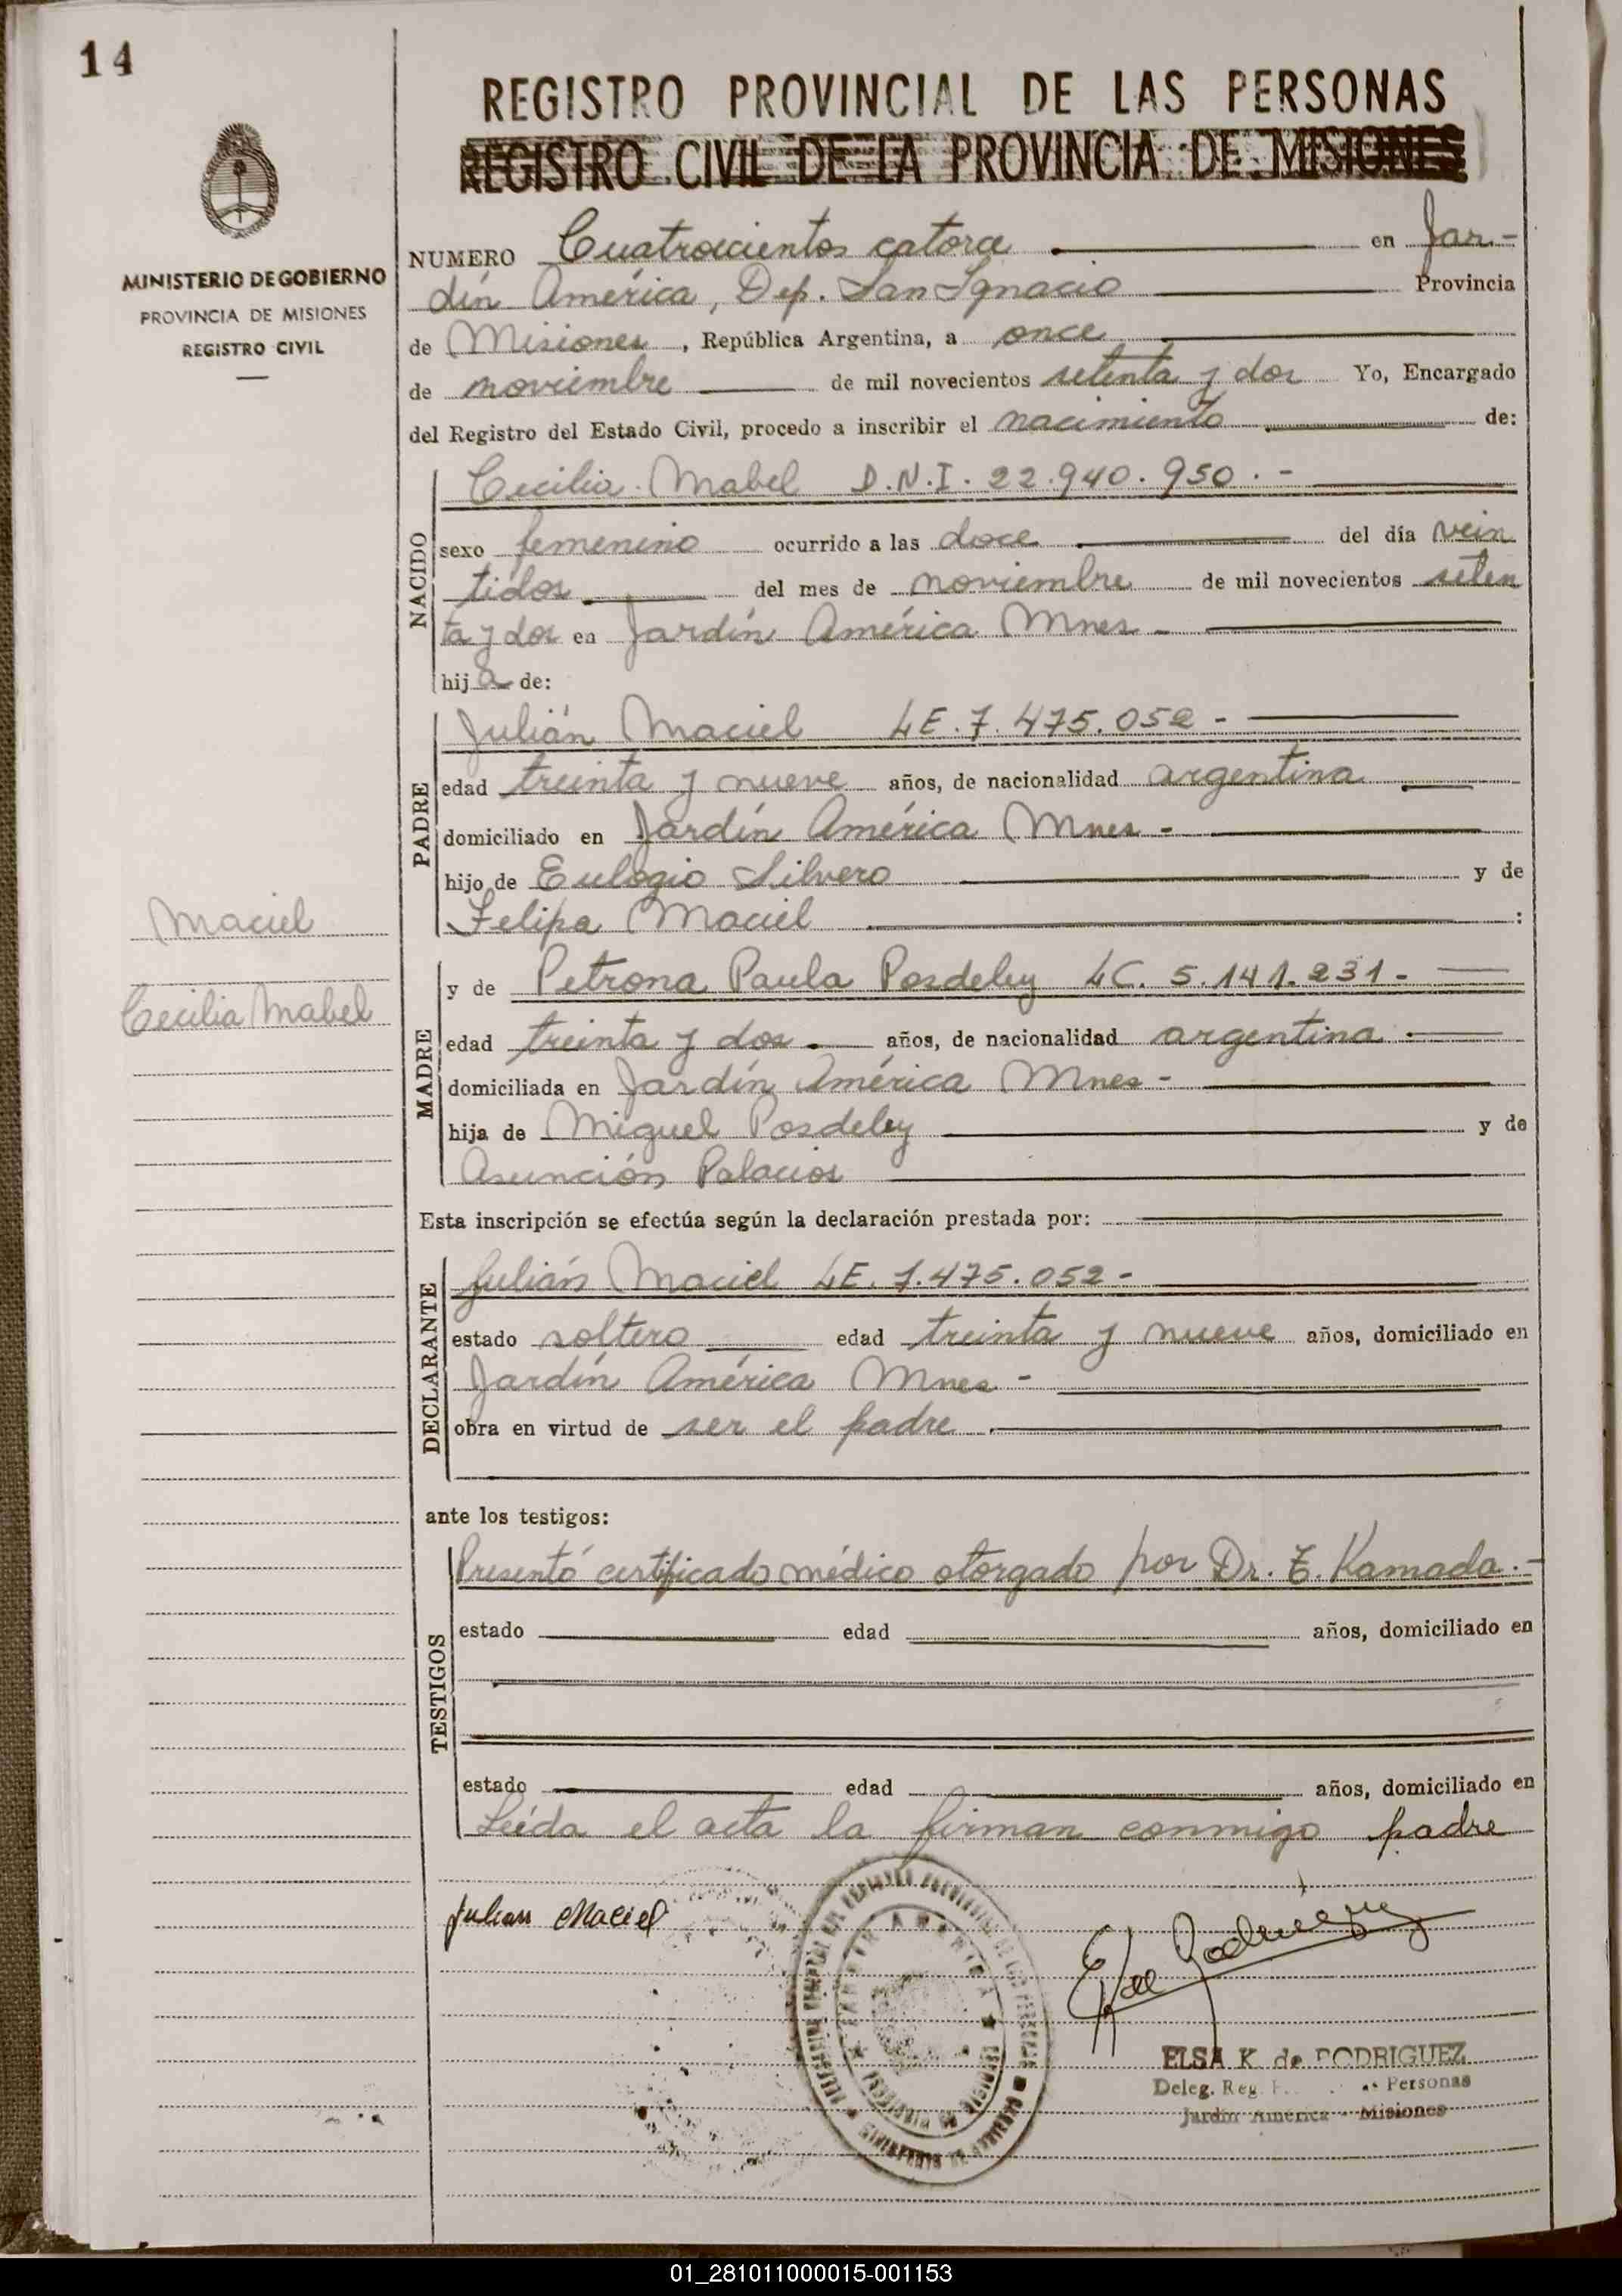 14
MINISTERIO DE GOBIERNO
PROVINCIA DE MISIONES
REGISTRO CIVIL
REGISTRO PROVINCIAL DE LAS PERSONAS
REGISTRO CIVIL DE LA PROVINCIA DE MISIONES
NUMERO Cuatrocientos catorce en Jar-
dín América, Dep. San Ignacio Provincia
de Misiones, República Argentina, a once
de noviembre de mil novecientos setenta y dos Yo, Encargado
del Registro del Estado Civil, procedo a inscribir el nacimiento de:
NACIDO
Cecilia Mabel D.N.I. 22.940.950.-
sexo femenino ocurrido a las doce del día vein
tidos del mes de noviembre de mil novecientos seten
ta y dos en Jardín América Mnes-
hija de:
PADRE
Julián Maciel LE.7.475.052-
edad treinta y nueve años, de nacionalidad argentina
domiciliado en Jardín América Mnes-
hijo de Eulogio Silvero y de
Felipa Maciel :
Maciel
Cecilia Mabel
MADRE
y de Petrona Paula Posdeley LC. 5.141.231-
edad treinta y dos años, de nacionalidad argentina
domiciliada en Jardín América Mnes-
hija de Miguel Posdeley y de
Asunción Palacios
Esta inscripción se efectúa según la declaración prestada por:
DECLARANTE
Julián Maciel LE.7.475.052-
estado soltero edad treinta y nueve años, domiciliado en
Jardín América Mnes-
obra en virtud de ser el padre
ante los testigos:
TESTIGOS
Presentó certificado médico otorgado por Dr. T. Kamada.-
estado edad años, domiciliado en
estado edad años, domiciliado en
Leída el acta la firman conmigo padre
Julian Maciel
E K de Rodriguez
JARDIN AMERICA
ELSA K. de RODRIGUEZ
Deleg. Reg. Personas
Jardín América - Misiones
01_281011000015-001153